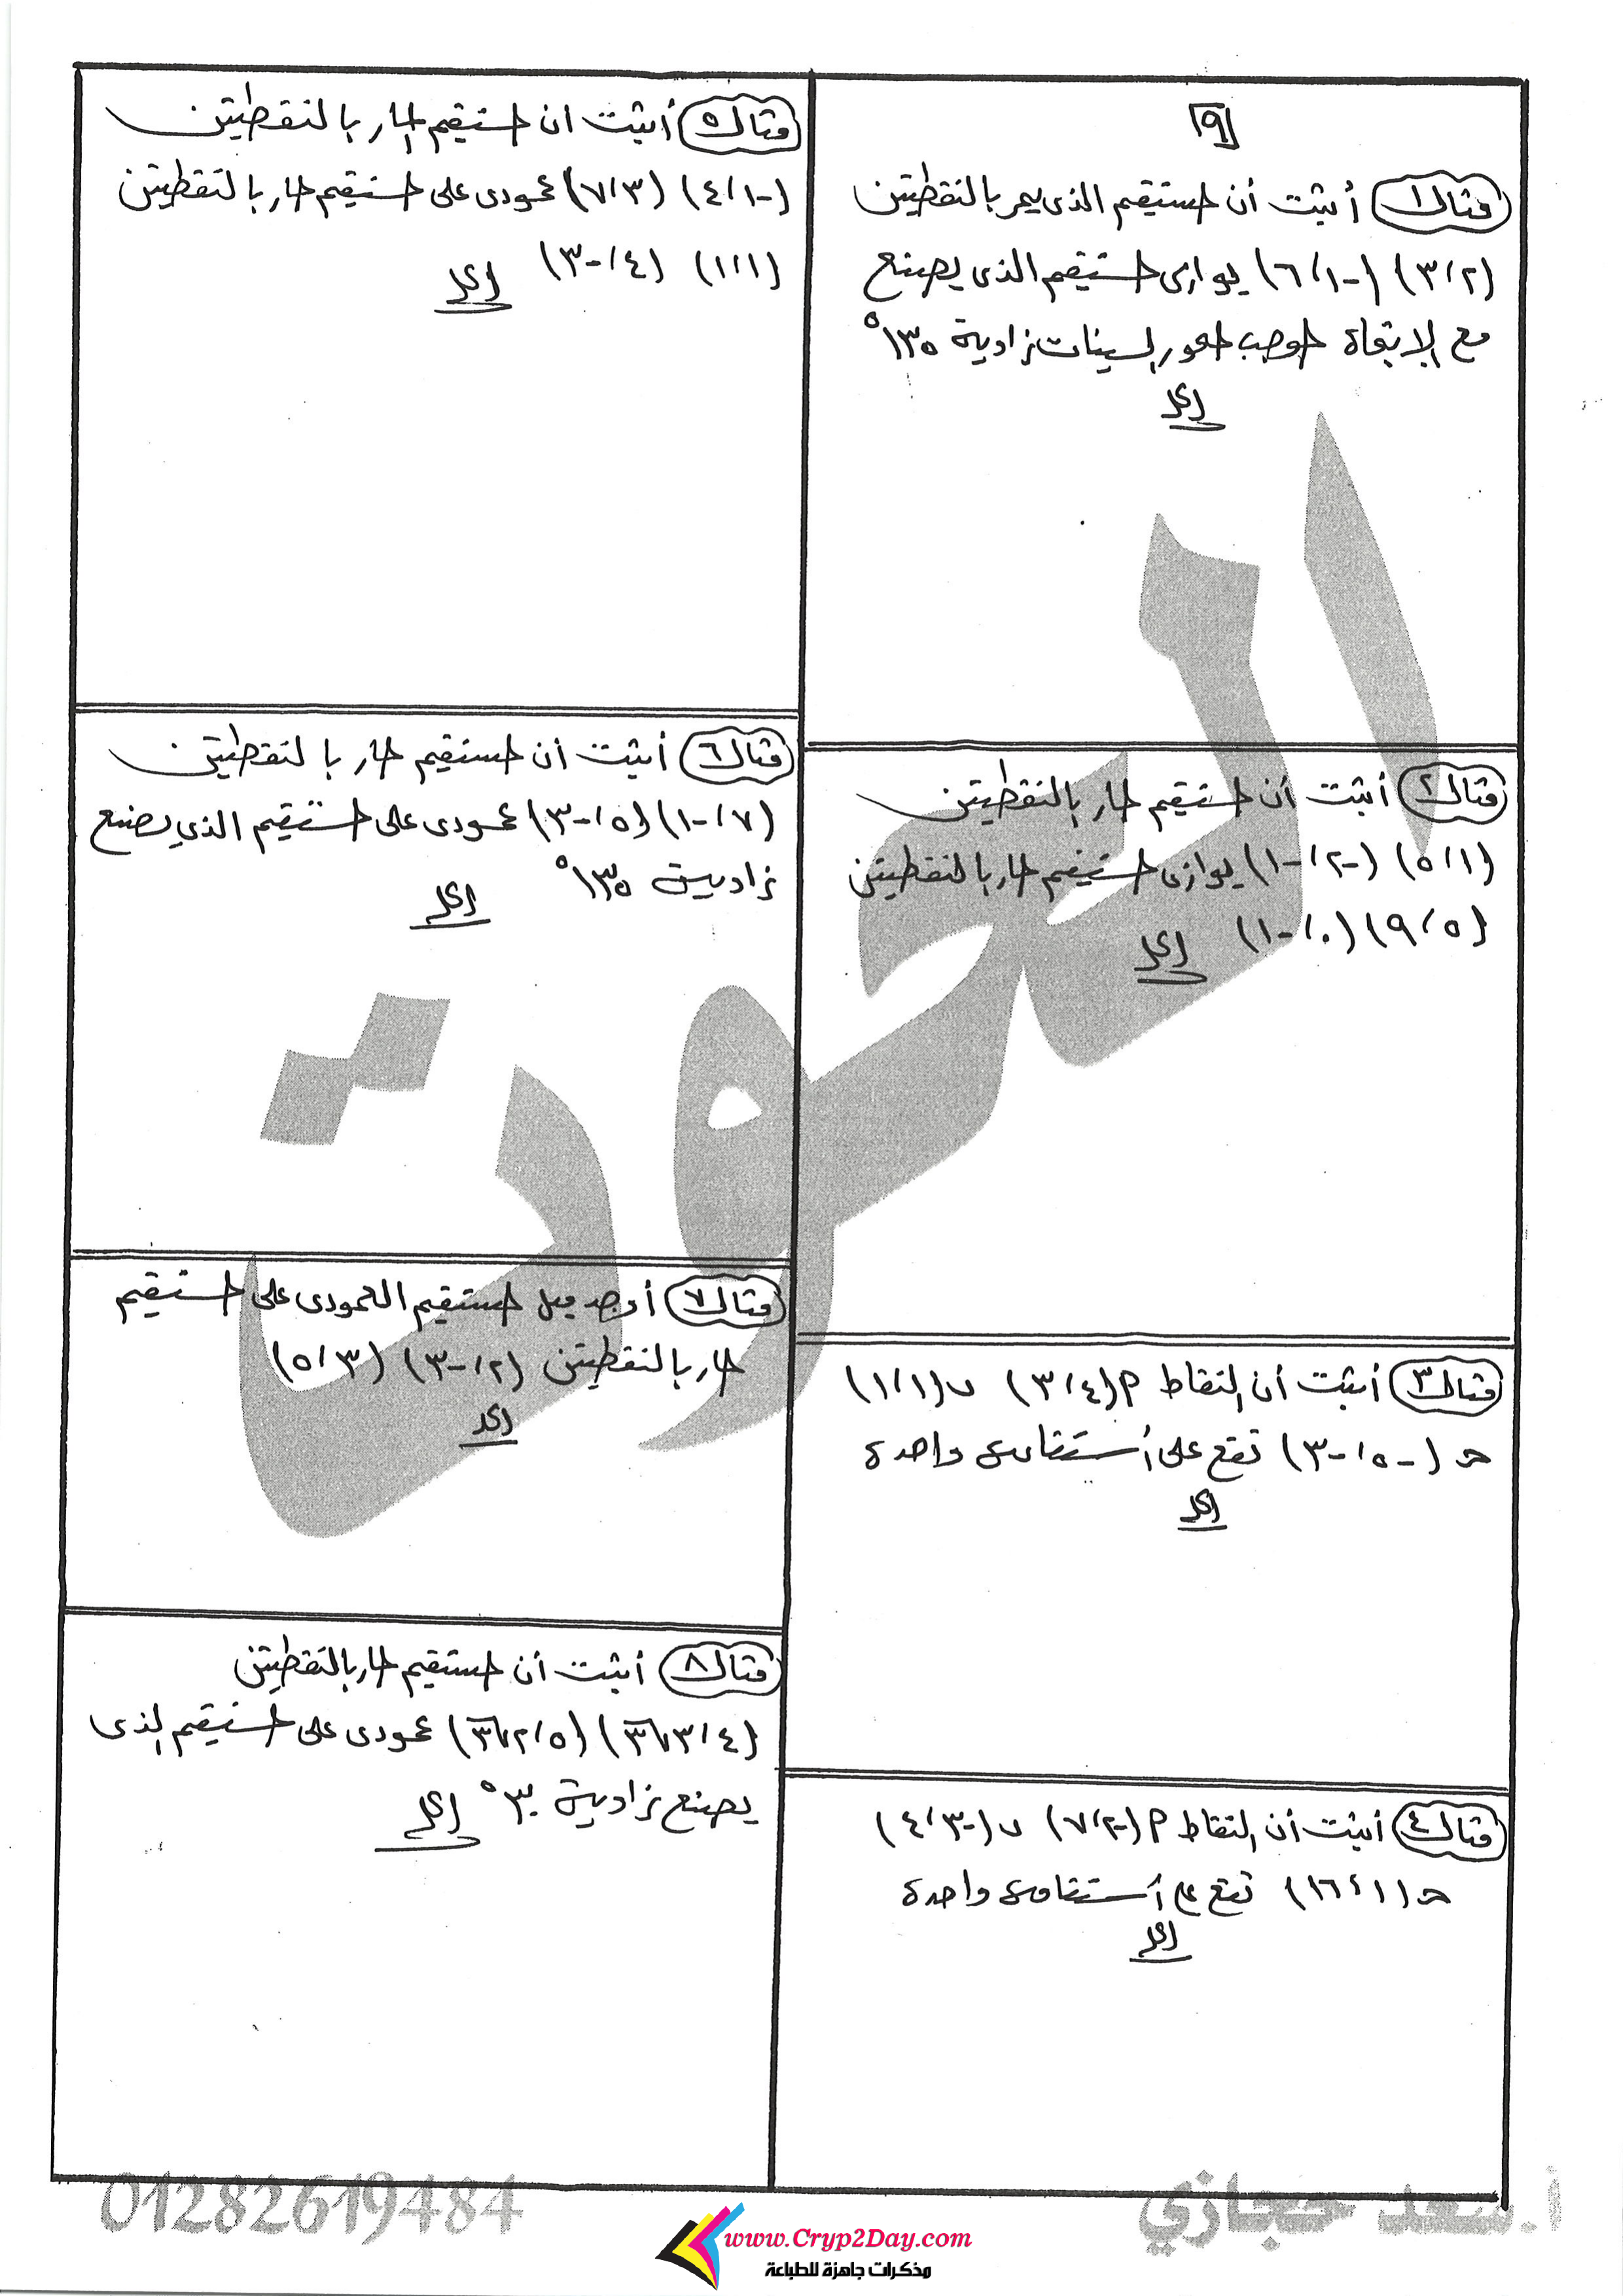 [٩]
مثال ١ أثبت أن المستقيم الذى يمر بالنقطتين
(٢ ، ٣) (-١ ، ٦) يوازى المستقيم الذى يصنع
مع الإتجاة الموجب لمحور السينات زاوية ١٣٥°
الحل
مثال ٢ أثبت أن المستقيم المار بالنقطتين
(١ ، ٥) (-٢ ، -١) يوازى المستقيم المار بالنقطتين
(٥ ، ٩) (٠ ، -١)
الحل
مثال ٣ أثبت أن النقاط م(٤ ، ٣) ب(١ ، ١)
حـ (-٥ ، -٣) تقع على أستقامة واحدة
الحل
مثال ٤ أثبت أن النقاط م(-٢ ، ٧) ب(-٣ ، ٤)
حـ (١ ، ١٦) تقع على أستقامة واحدة
الحل
مثال ٥ أثبت ان المستقيم المار بالنقطتين
(-١ ، ٤) (٣ ، ٧) عمودى على المستقيم المار بالنقطتين
(١ ، ١) (٤ ، -٣)
الحل
مثال ٦ أثبت أن المستقيم المار بالنقطتين
(٧ ، -١) (٥ ، -٣) عمودى على المستقيم الذي يصنع
زاوية ١٣٥°
الحل
مثال ٧ أوجد ميل المستقيم العمودى على المستقيم
المار بالنقطتين (٢ ، -٣) (٣ ، ٥)
الحل
مثال ٨ أثبت أن المستقيم المار بالنقطتين
(٤ ، ٣√٣) (٥ ، ٢√٣) عمودى على المستقيم الذى
يصنع زاوية ٣٠°
الحل
أ.سعد حجازي
01282619484
www.Cryp2Day.com
مذكرات جاهزة للطباعة